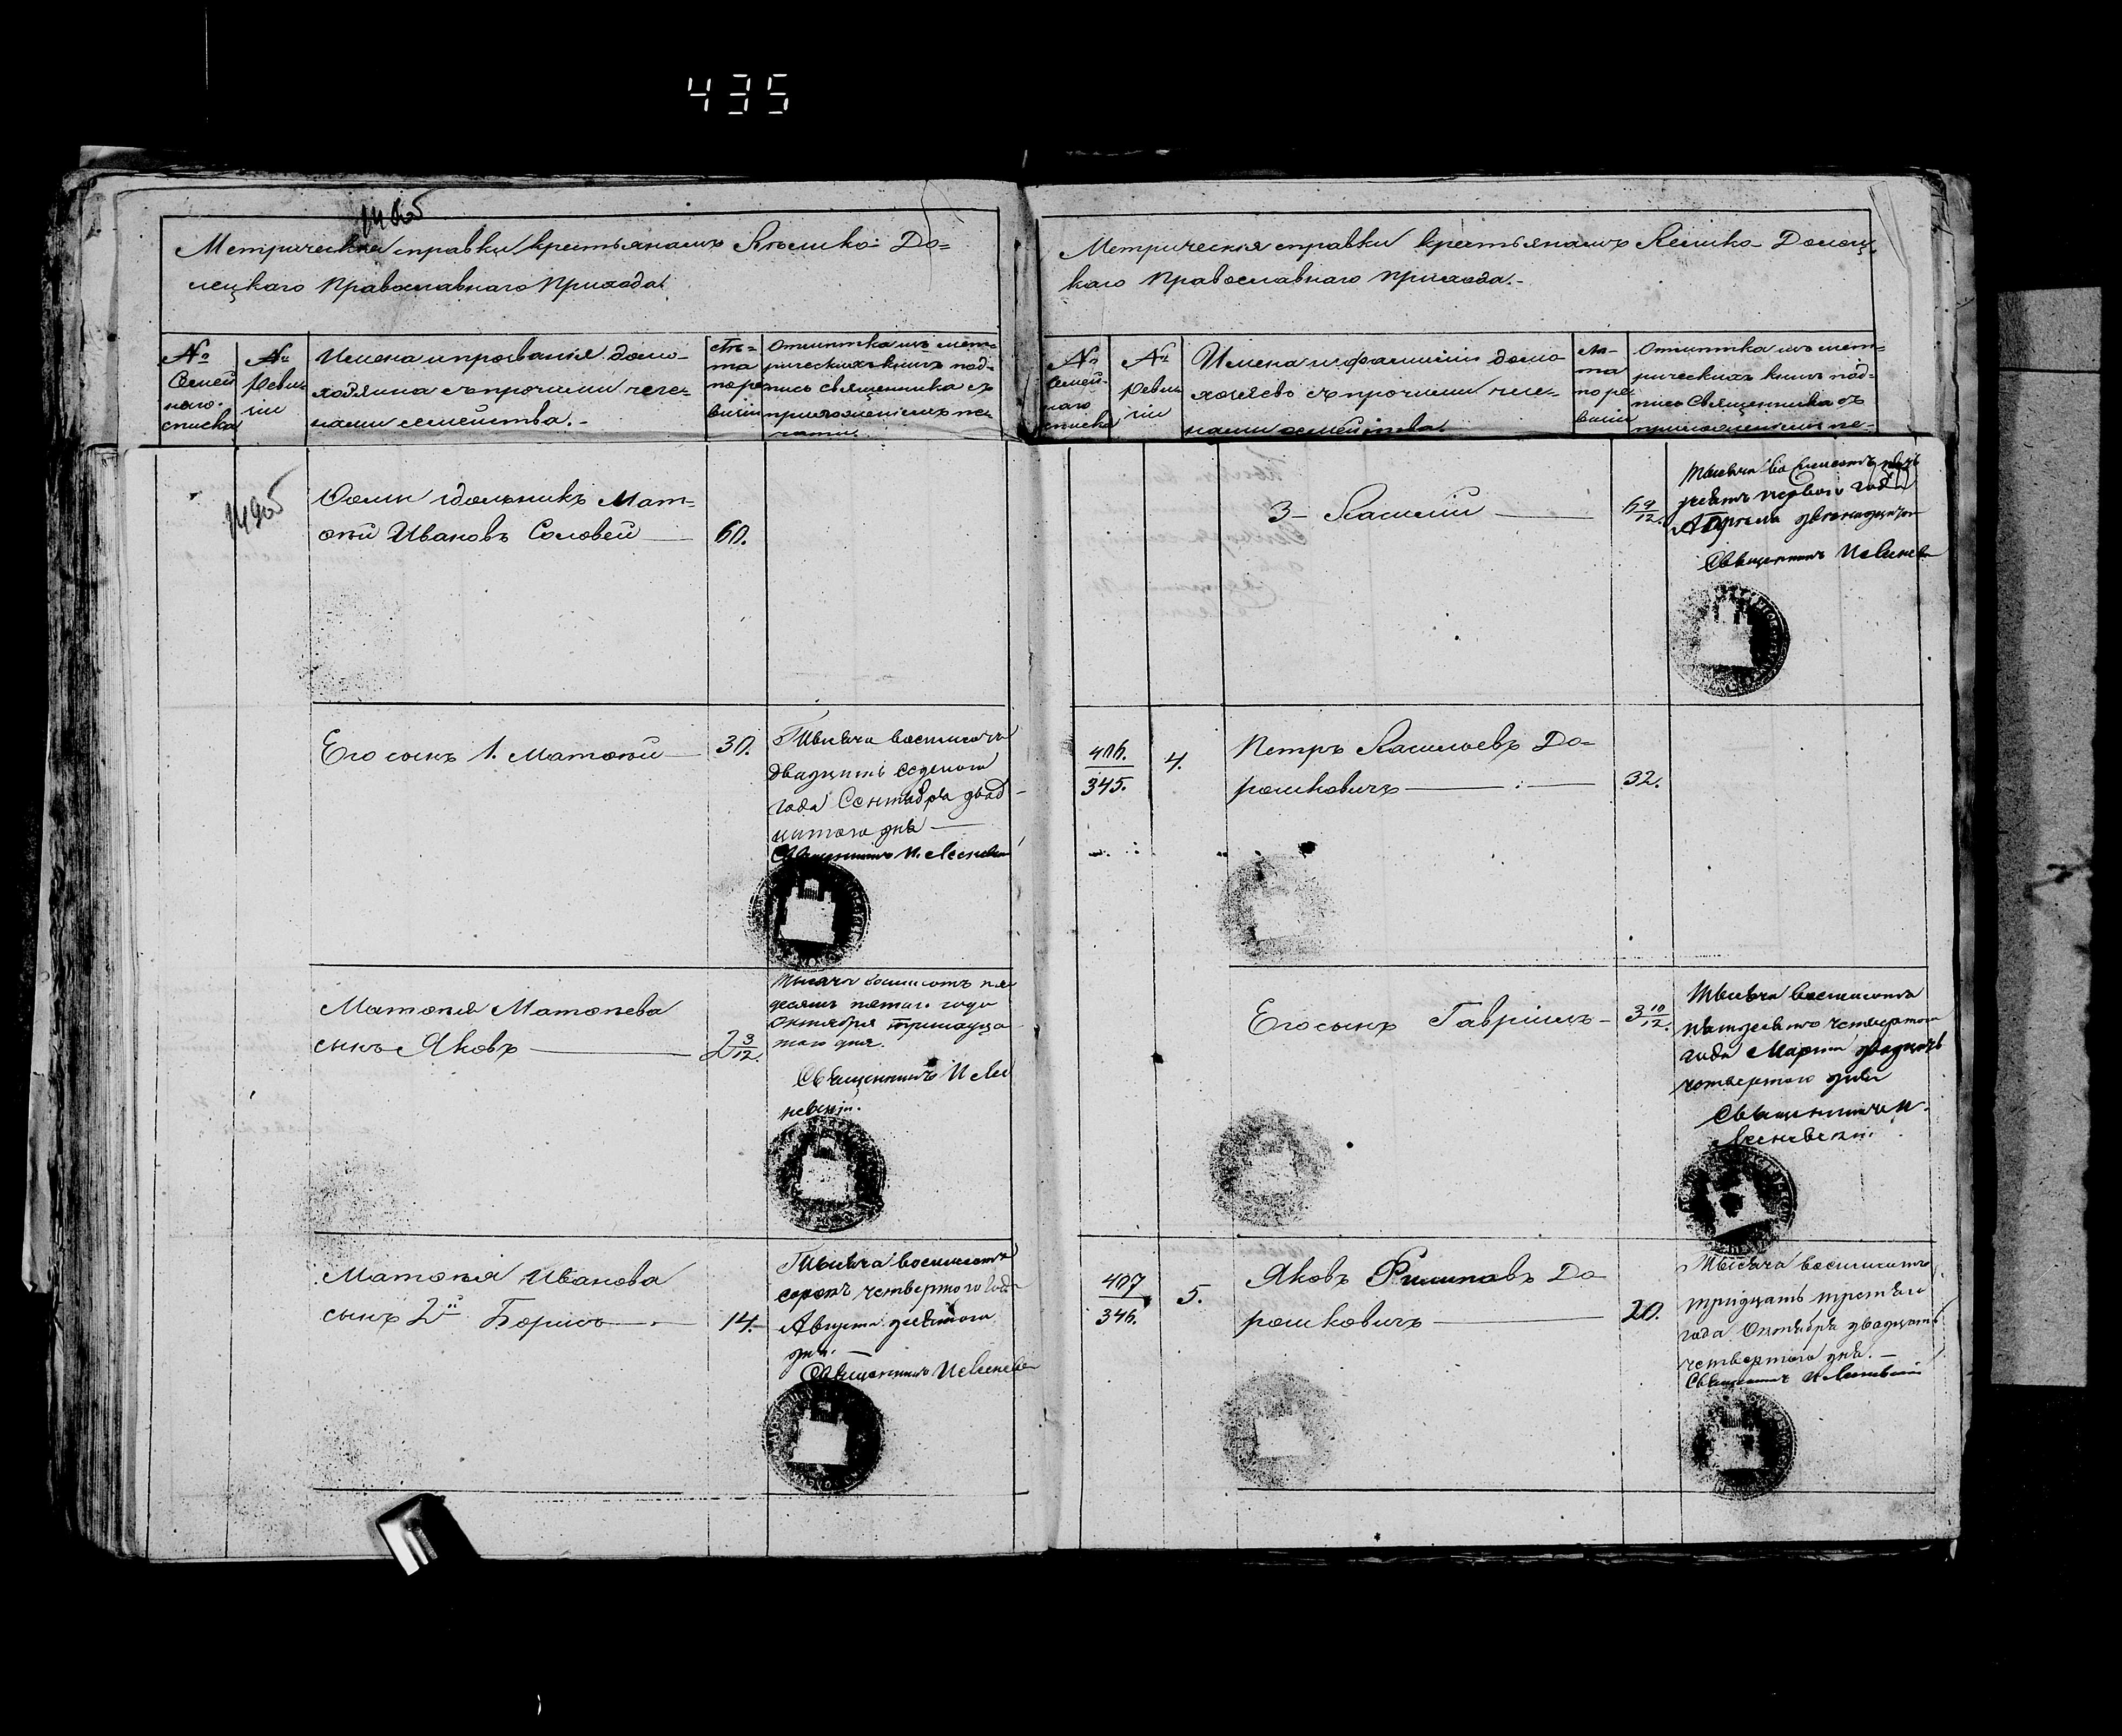 435
Метрическiя справки крестьянамъ Велико-До=
лецкаго Православнаго Прихода.
№ Семей наго списка
№ Ревизiи
Имена и прозванiя домо-
хозяина съ прочими чле-
нами семейства.
лѣ=
та
по ре
визiи
Отмѣтка изъ мет=
рическихъ книгъ под=
пись священника съ
приложенiемъ пе
чати.
Матѳѣй Ивановъ Соловей
60.
Его сынъ 1. Матѳѣй
30.
Тысяча восемьсотъ
двадцать седьмого
года Сентября двад-
цатого дня
Священникъ И.
Матѳѣя Матѳѣева
сынъ Яковъ
2 3/12.
Тысяча восемьсотъ пя
десятъ пятаго года
Октября тринадца
таго дня.
Священникъ И
Матѳѣя Иванова
сынъ 2й Борисъ
14.
Тысяча восемьсотъ
сорокъ четвертого года
Августа девятого
дня.
Священникъ И
Метрическiя справки крестьянамъ Велико-Долец
каго Православнаго Прихода.
№ Семей- наго списка
№ Ревизiи
Имена и фамилiи домо
хозяевъ съ прочими чле-
нами семейства.
лѣ-
та
по ре
визiи
Отмѣтка изъ мет=
рическихъ книгъ под=
пись Священника съ
приложенiемъ пе-
3- Василiй
Тысяча восемьсотъ
десятъ первого года
Апрѣля двенадцатого
Священникъ И
406.
345.
4.
Петръ Васильевъ До=
рошковичъ
32.
Его сынъ Гаврiилъ
3 10/12.
Тысяча восемьсотъ
пятдесятъ четвертого
года Марта двадцать
четвертого дня
Священникъ И.
407
346.
5.
Яковъ Филиповъ До
рошковичъ
20.
Тысяча восемьсотъ
тридцать третьяго
года Октября двадцать
четвертого дня.
Священникъ И